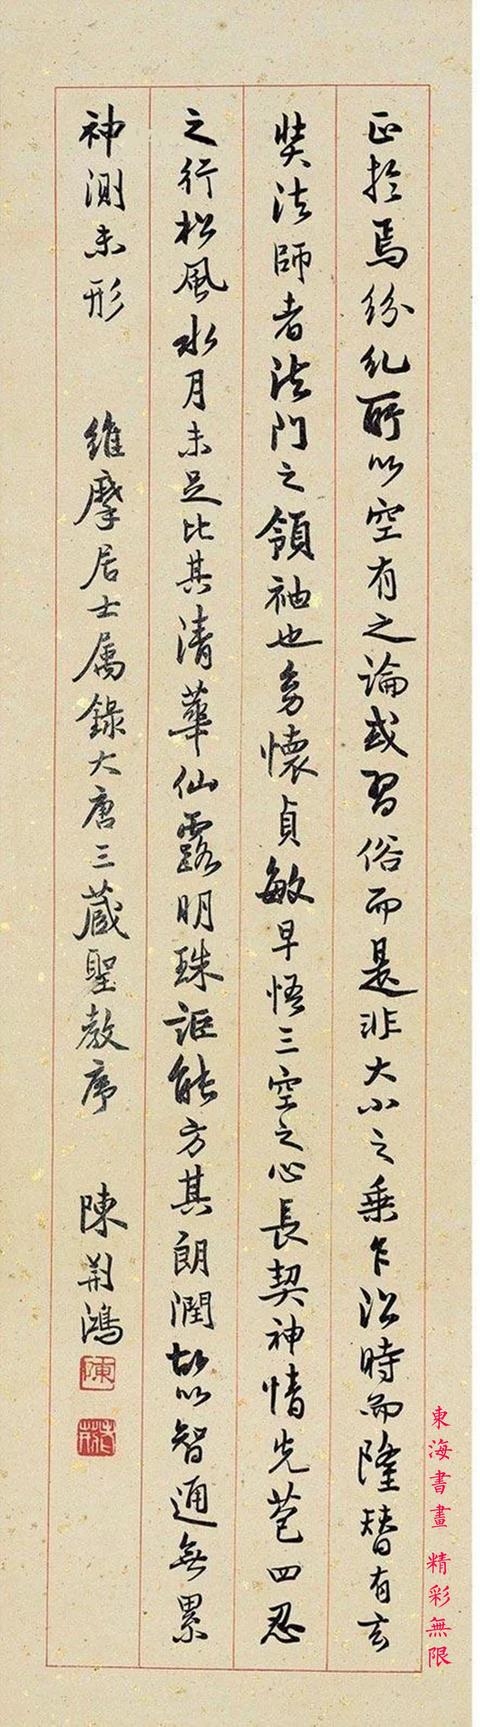 正於焉紛糺所以空有之論或習俗而是非大小之乘乍沿時而隆替有玄
奘法師者法門之領袖也幼懷貞敏早悟三空之心長契神情先苞四忍
之行松風水月未足比其清華仙露明珠詎能方其朗潤故以智通無累
神測未形 維摩居士属錄大唐三藏聖教序 陳荊鴻
陳
東海書畫 精彩無限